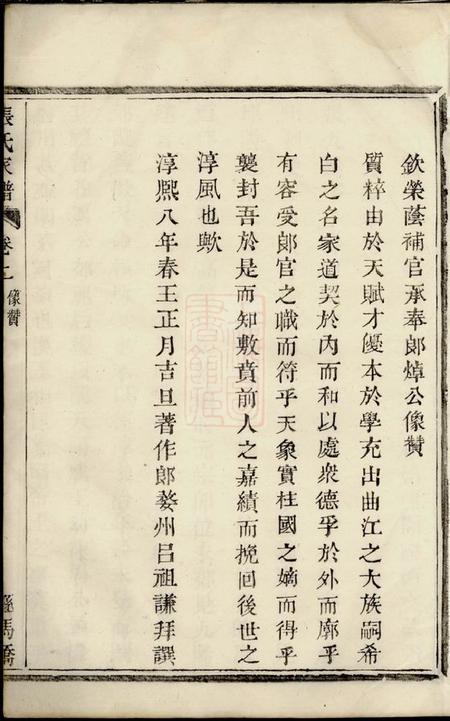 欽榮蔭補官承奉郎焯公像贊
質粹由於天賦才優本於學充出曲江之大族嗣希
白之名家道契於內而和以處衆德孚於外而廓乎
有容受郎官之職而符乎天象實柱國之嫡而得乎
襲封吾於是而知敷賁前人之嘉績而挽回後世之
淳風也歟
淳熙八年春王正月吉旦著作郎婺州呂祖謙拜譔
張氏家譜
卷
像贊
馬橋